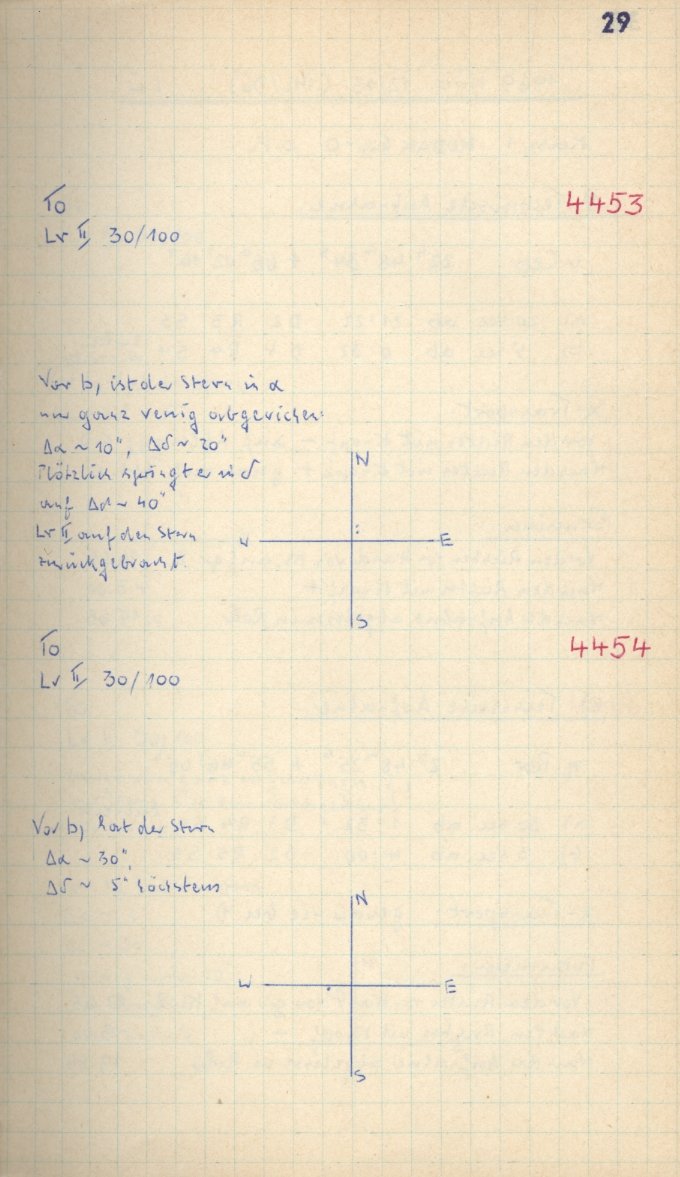 29
To
4453
Lv II 30/100
Vor b, ist der Stern in α
nur ganz wenig abgewichen:
Δα ~ 10", Δδ ~ 20"
Plötzlich springt er in δ
auf Δδ ~ 40"
Lv II auf den Stern
zurückgebracht.
N
W E
S
To
4454
Lv II 30/100
Vor b, hat der Stern
Δα ~ 30",
Δδ ~ 5" höchstens
N
W E
S